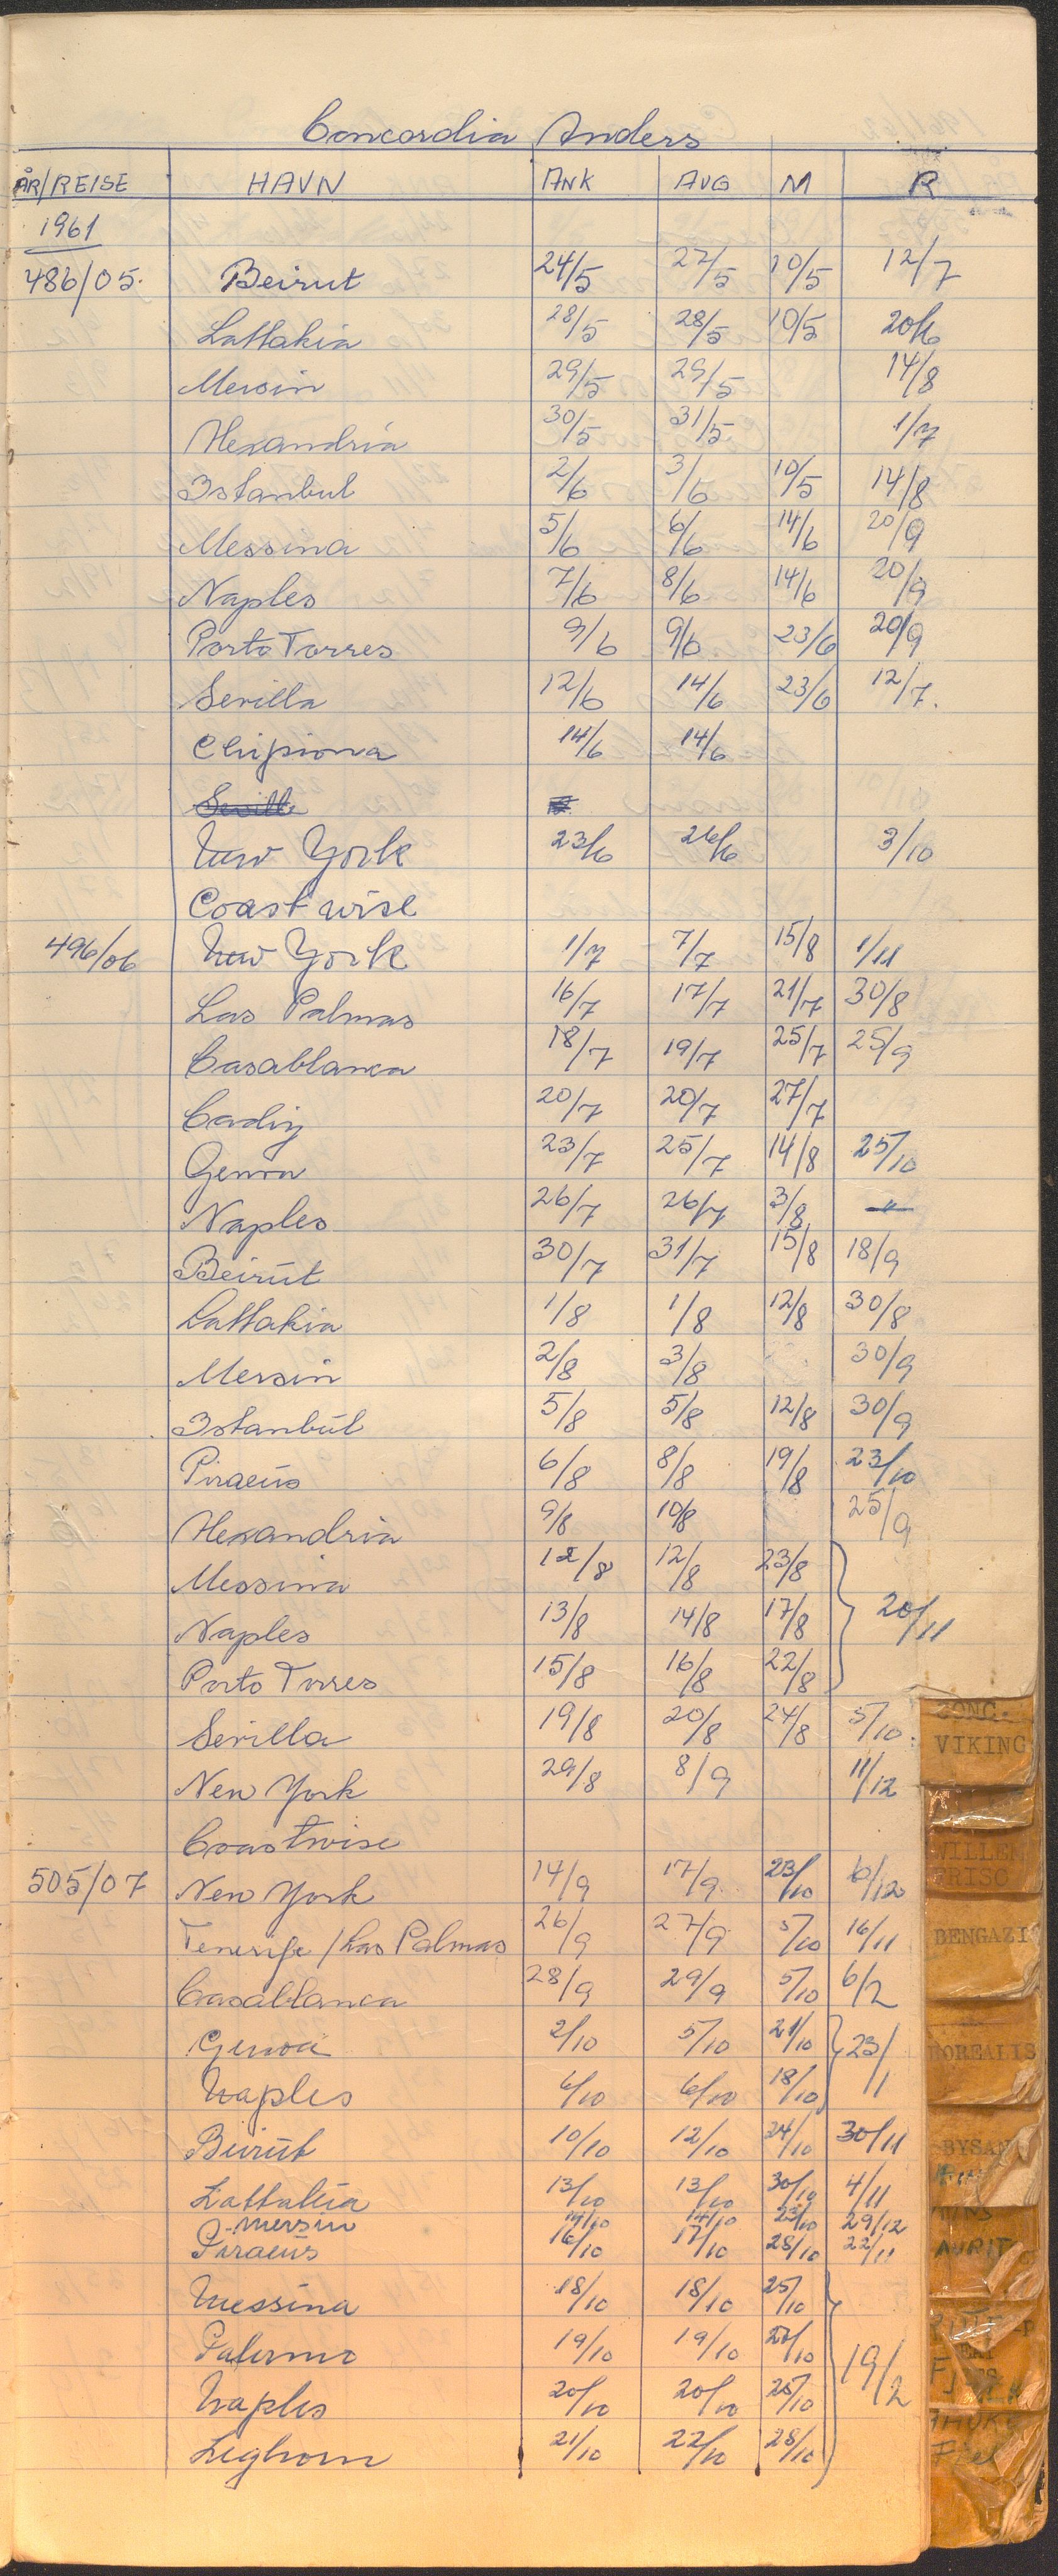 Concordia Anders
ÅR/REISE HAVN ANK AVG M R
1961
486/05. Beirut 24/5 27/5 10/5 12/7
Lattakia 28/5 28/5 10/5 20/6
Mersin 29/5 29/5 14/8
Alexandria 30/5 31/5 1/7
Istanbul 2/6 3/6 10/5 14/8
Messina 5/6 6/6 14/6 20/9
Naples 7/6 8/6 14/6 20/9
Porto Torres 9/6 9/6 23/6 20/9
Sevilla 12/6 14/6 23/6 12/7.
Chipiona 14/6 14/6
Seville
New York 23/6 26/6 3/10
Coastwise
496/06 New York 1/7 7/7 15/8 1/11
Las Palmas 16/7 17/7 21/7 30/8
Casablanca 18/7 19/7 25/7 25/9
Cadiz 20/7 20/7 27/7
Genoa 23/7 25/7 14/8 25/10
Naples 26/7 26/7 3/8 "
Beirut 30/7 31/7 15/8 18/9
Lattakia 1/8 1/8 12/8 30/8
Mersin 2/8 3/8 30/9
Istanbul 5/8 5/8 12/8 30/9
Piraeus 6/8 8/8 19/8 23/10
Alexandria 9/8 10/8 25/9
Messina 12/8 12/8 23/8
Naples 13/8 14/8 17/8 20/11
Porto Torres 15/8 16/8 22/8
Sevilla 19/8 20/8 24/8 5/10.
New York 29/8 8/9 11/12
Coastwise
505/07 New York 14/9 17/9 23/10 6/12
Tenerife / Las Palmas 26/9 27/9 5/10 16/11
Casablanca 28/9 29/9 5/10 6/2
Genoa 2/10 5/10 21/10 23/1
Naples 6/10 6/10 18/10
Beirut 10/10 12/10 24/10 30/11
Lattakia 13/10 13/10 30/10 4/11
Mersin 14/10 14/10 23/10 29/12
Piraeus 16/10 17/10 28/10 22/11
Messina 18/10 18/10 25/10
Palermo 19/10 19/10 21/10 19/2
Naples 20/10 20/10 25/10
Leghorn 21/10 22/10 28/10
CONC.
VIKING
WILLEM
FRISO
BENGAZI
BOREALIS
BYSAN